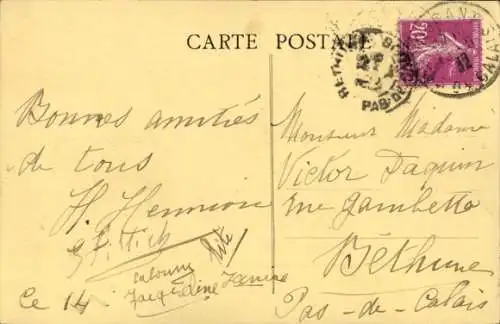 CARTE POSTALE
20c
BETHUNE
PAS DE CALAIS
Bonnes amitiés
de tous
H. Hennion
Jacqueline Janine
Ce 14
Monsieur Madame
Victor Daquin
rue Gambetta
Béthune
Pas-de-Calais